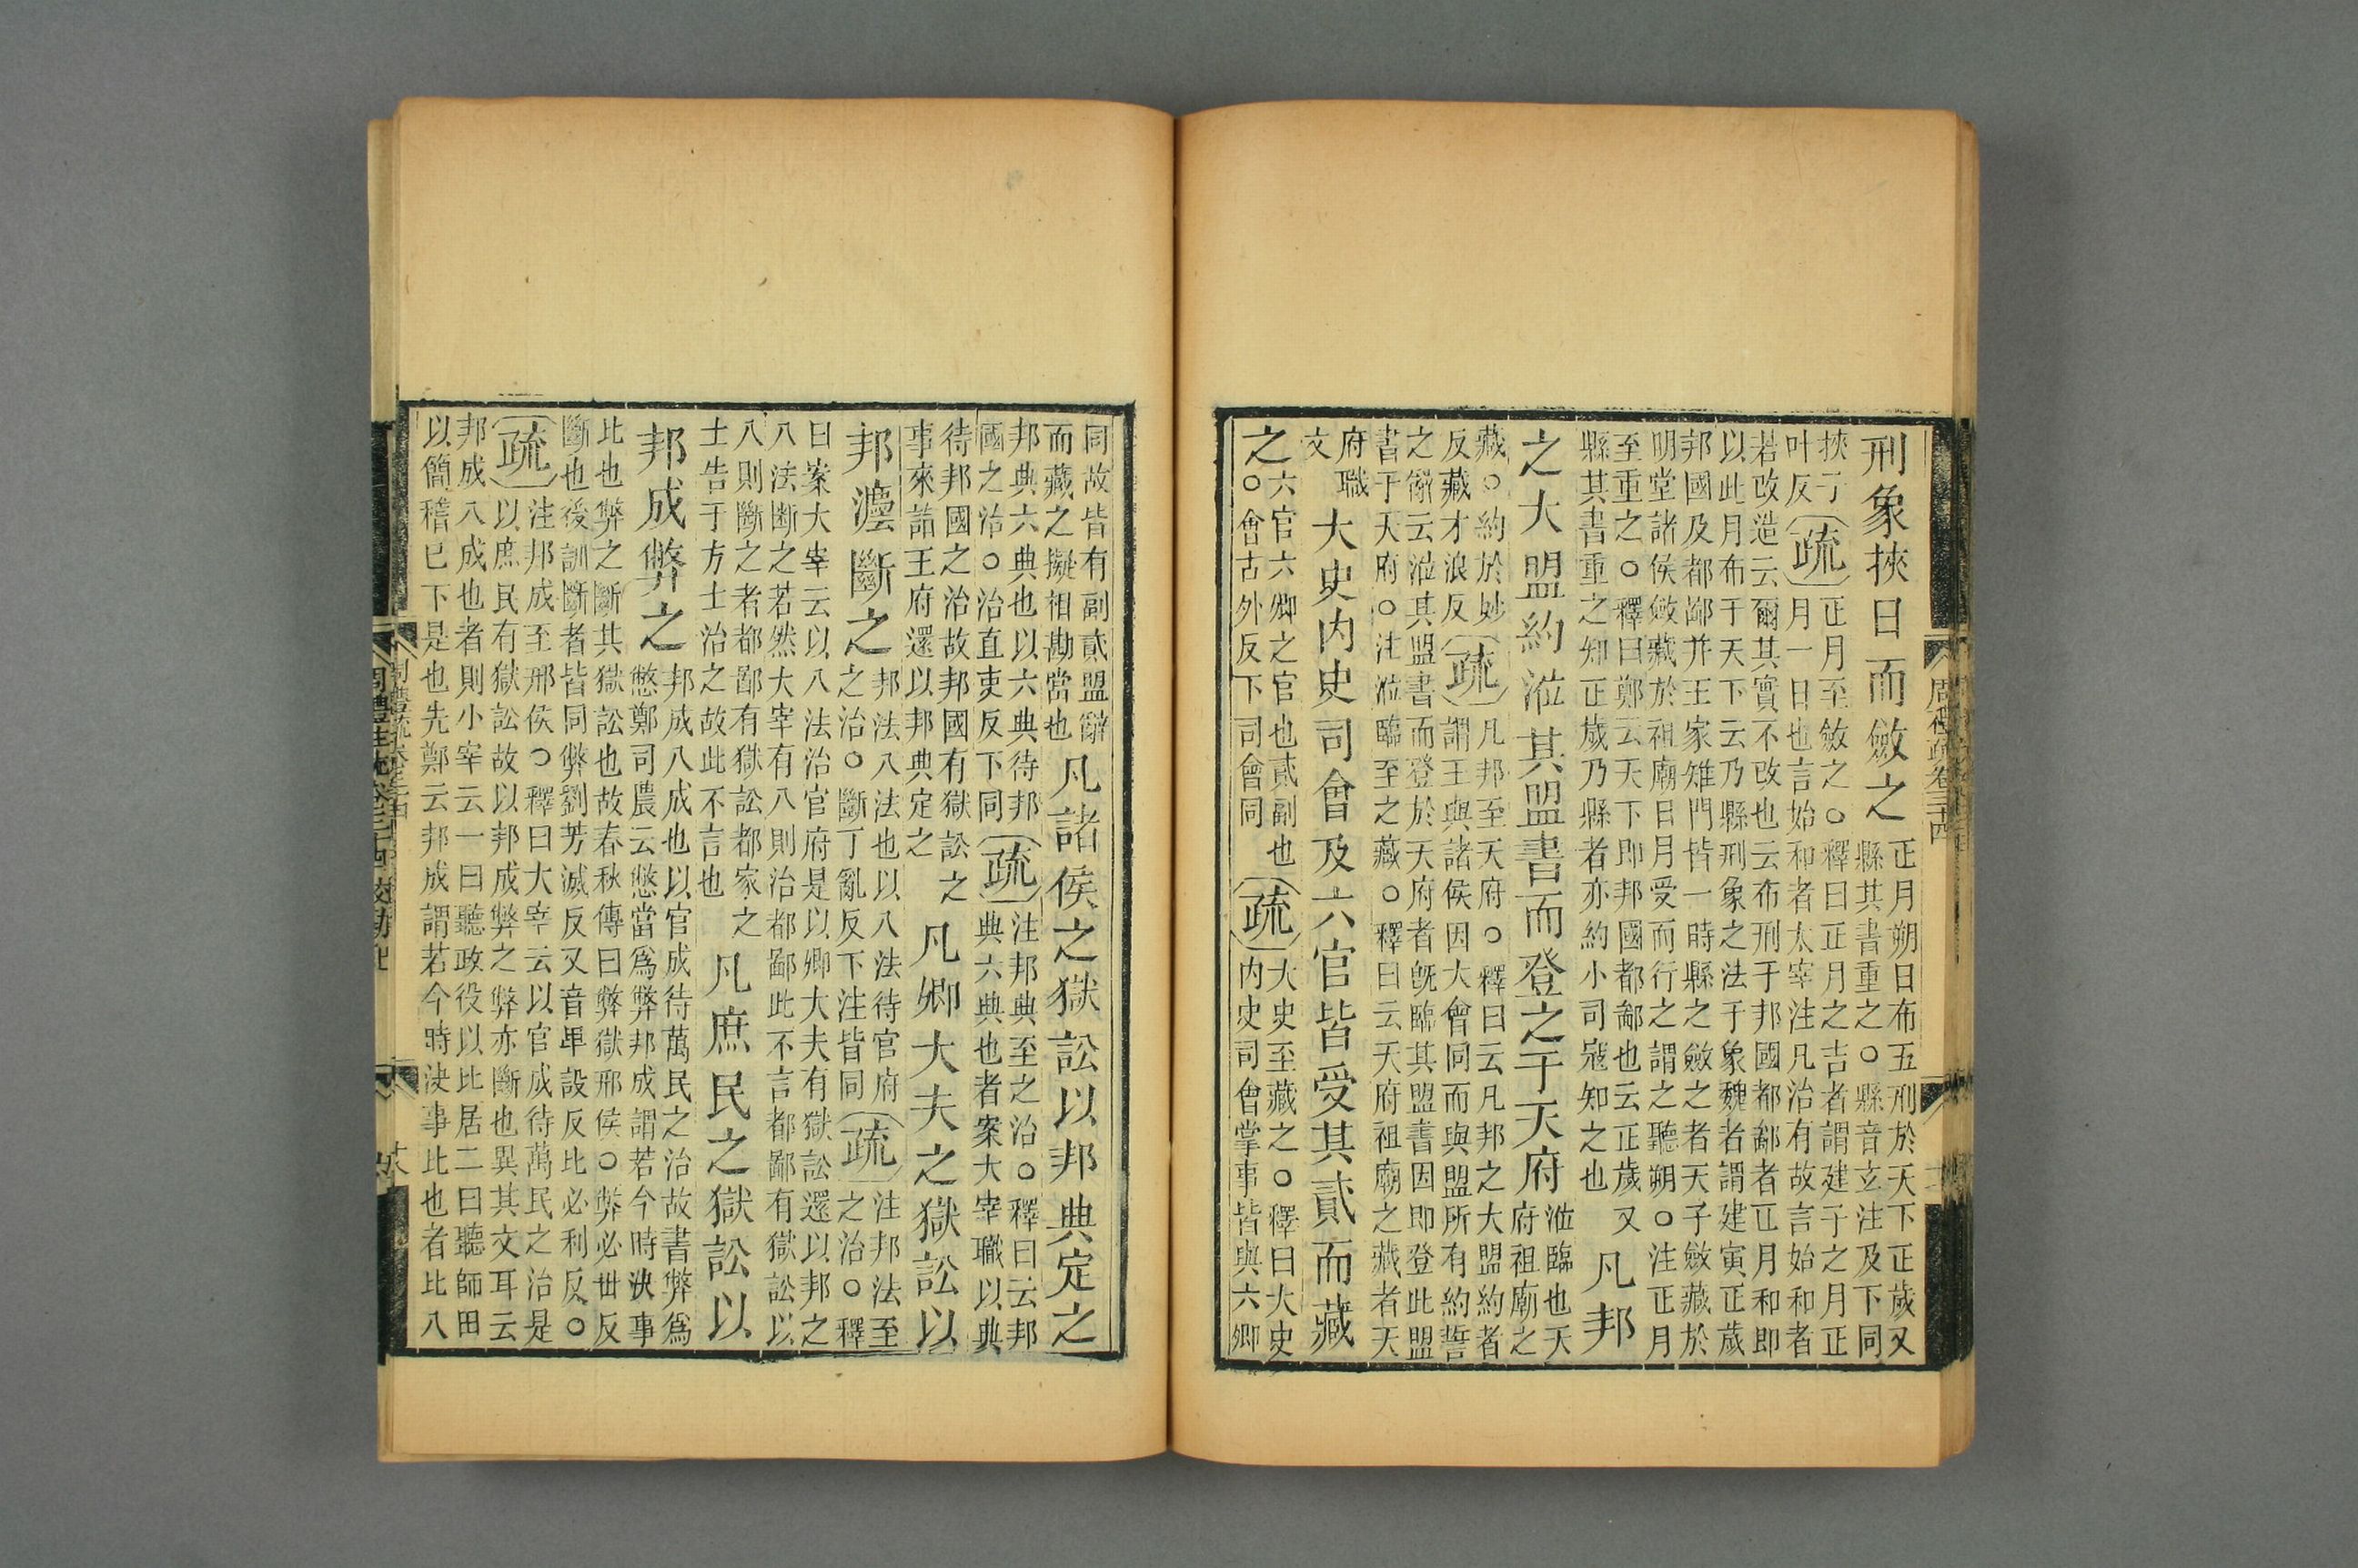 刑象挾日而斂之正月朔日布五刑於天下正歲又
縣其書重之○縣音玄注及下同
挾子
叶反疏正月至斂之○釋曰正月之吉者謂建子之月正
月一日也言始和者太宰注凡治有故言始和者
若改造云爾其實不改也云布刑于邦國都鄙者正月和即
以此月布于天下云乃縣刑象之法于象魏者謂建寅正歲
邦國及都鄙并王家雉門皆一時縣之斂之者天子斂藏於
明堂諸侯斂藏於祖廟日月受而行之謂之聽朔○注正月
至重之○釋曰鄭云天下即邦國都鄙也云正歲又
縣其書重之知正歲乃縣者亦約小司寇知之也凡邦
之大盟約涖其盟書而登之于天府涖臨也天
府祖廟之
藏○約於妙
反藏才浪反疏凡邦至天府○釋曰云凡邦之大盟約者
謂王與諸侯因大會同而與盟所有約誓
之辭云涖其盟書而登於天府者旣臨其盟書因即登此盟
書于天府○注涖臨至之藏○釋曰云天府祖廟之藏者天
府職
文大史内史司會及六官皆受其貳而藏
之六官六卿之官也貳副也
○會古外反下司會同疏大史至藏之○釋曰大史
内史司會掌事皆與六卿
同故皆有副貳盟辭
而藏之擬相勘當也凡諸侯之獄訟以邦典定之
邦典六典也以六典待邦
國之治○治直吏反下同疏注邦典至之治○釋曰云邦
典六典也者案大宰職以典
待邦國之治故邦國有獄訟之
事來詣王府還以邦典定之凡卿大夫之獄訟以
邦灋斷之邦法八法也以八法待官府
之治○斷丁亂反下注皆同疏注邦法至
之治○釋
曰案大宰云以八法治官府是以卿大夫有獄訟還以邦之
八法断之若然大宰有八則治都鄙此不言都鄙有獄訟以
八則斷之者都鄙有獄訟都家之
士告于方士治之故此不言也凡庶民之獄訟以
邦成弊之邦成八成也以官成待萬民之治故書弊爲
憋鄭司農云憋當爲弊邦成謂若今時決事
比也弊之斷其獄訟也故春秋傳曰弊獄邢侯○弊必丗反
斷也後訓斷者皆同弊劉芳滅反又音畢設反比必利反○
疏注邦成至邢侯○釋曰大宰云以官成待萬民之治是
以庶民有獄訟故以邦成弊之弊亦斷也異其文耳云
邦成八成也者則小宰云一曰聽政役以比居二曰聽師田
以簡稽已下是也先鄭云邦成謂若今時決事比也者比八
周禮疏卷三十四